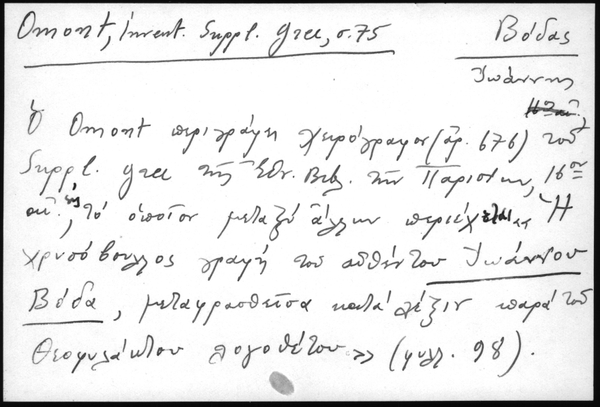 Omont, Invent. Suppl. grec, σ. 75 Βόδας
Ἰωάννης
Ὁ Omont περιγράφει χειρόγραφον (ἀρ. 676) τοῦ
Suppl. grec τῆς Ἐθν. Βιβ. τῶν Παρισίων, 16ου
αἰ., εἰς τό ὁποῖον μεταξύ ἄλλων περιέχεται « Ἡ
χρυσόβουλλος γραφή τοῦ αὐθέντου Ἰωάννου
Βόδα, μεταφρασθεῖσα κατά λέξιν παρά τοῦ
Θεοφυλάκτου λογοθέτου » (φυλ. 98).